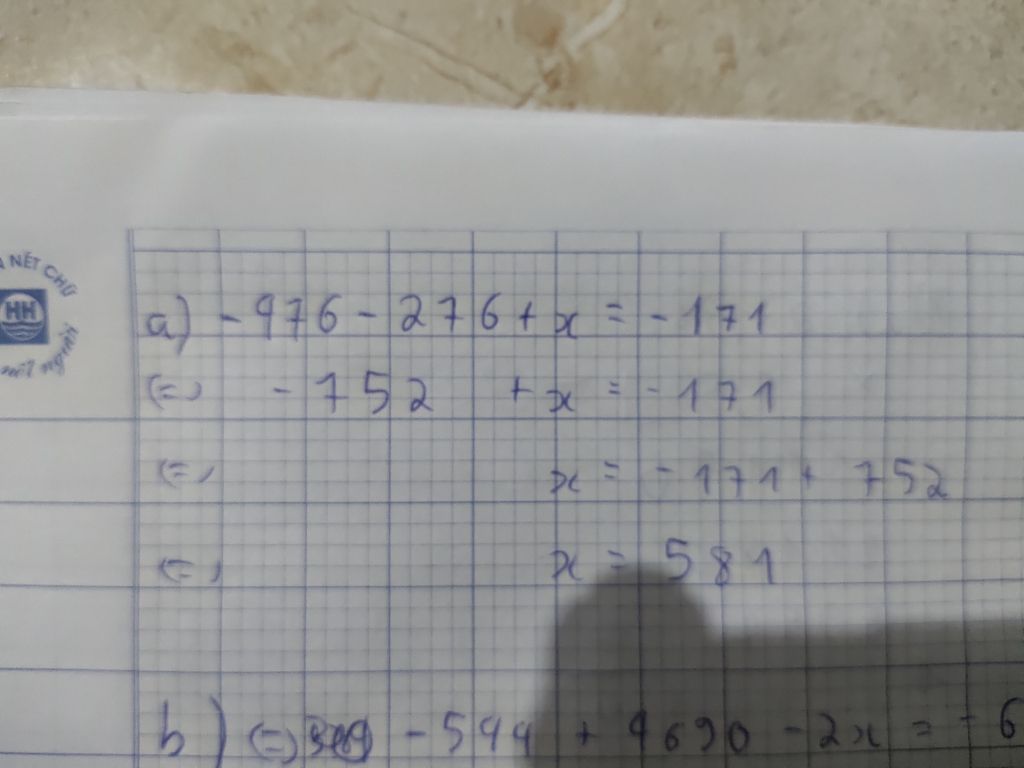 NÉT CHỮ
HH
a) - 476 - 276 + x = - 171
(=) - 752 + x = - 171
(=) x = - 171 + 752
(=) x = 581
b) (=) - 544 + 4690 - 2x = - 6